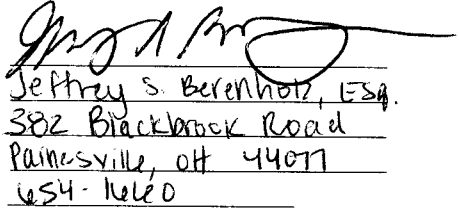 Jeffrey S. Berenholz, Esq.
382 Blackbrook Road
Painesville, OH 44077
654-1660